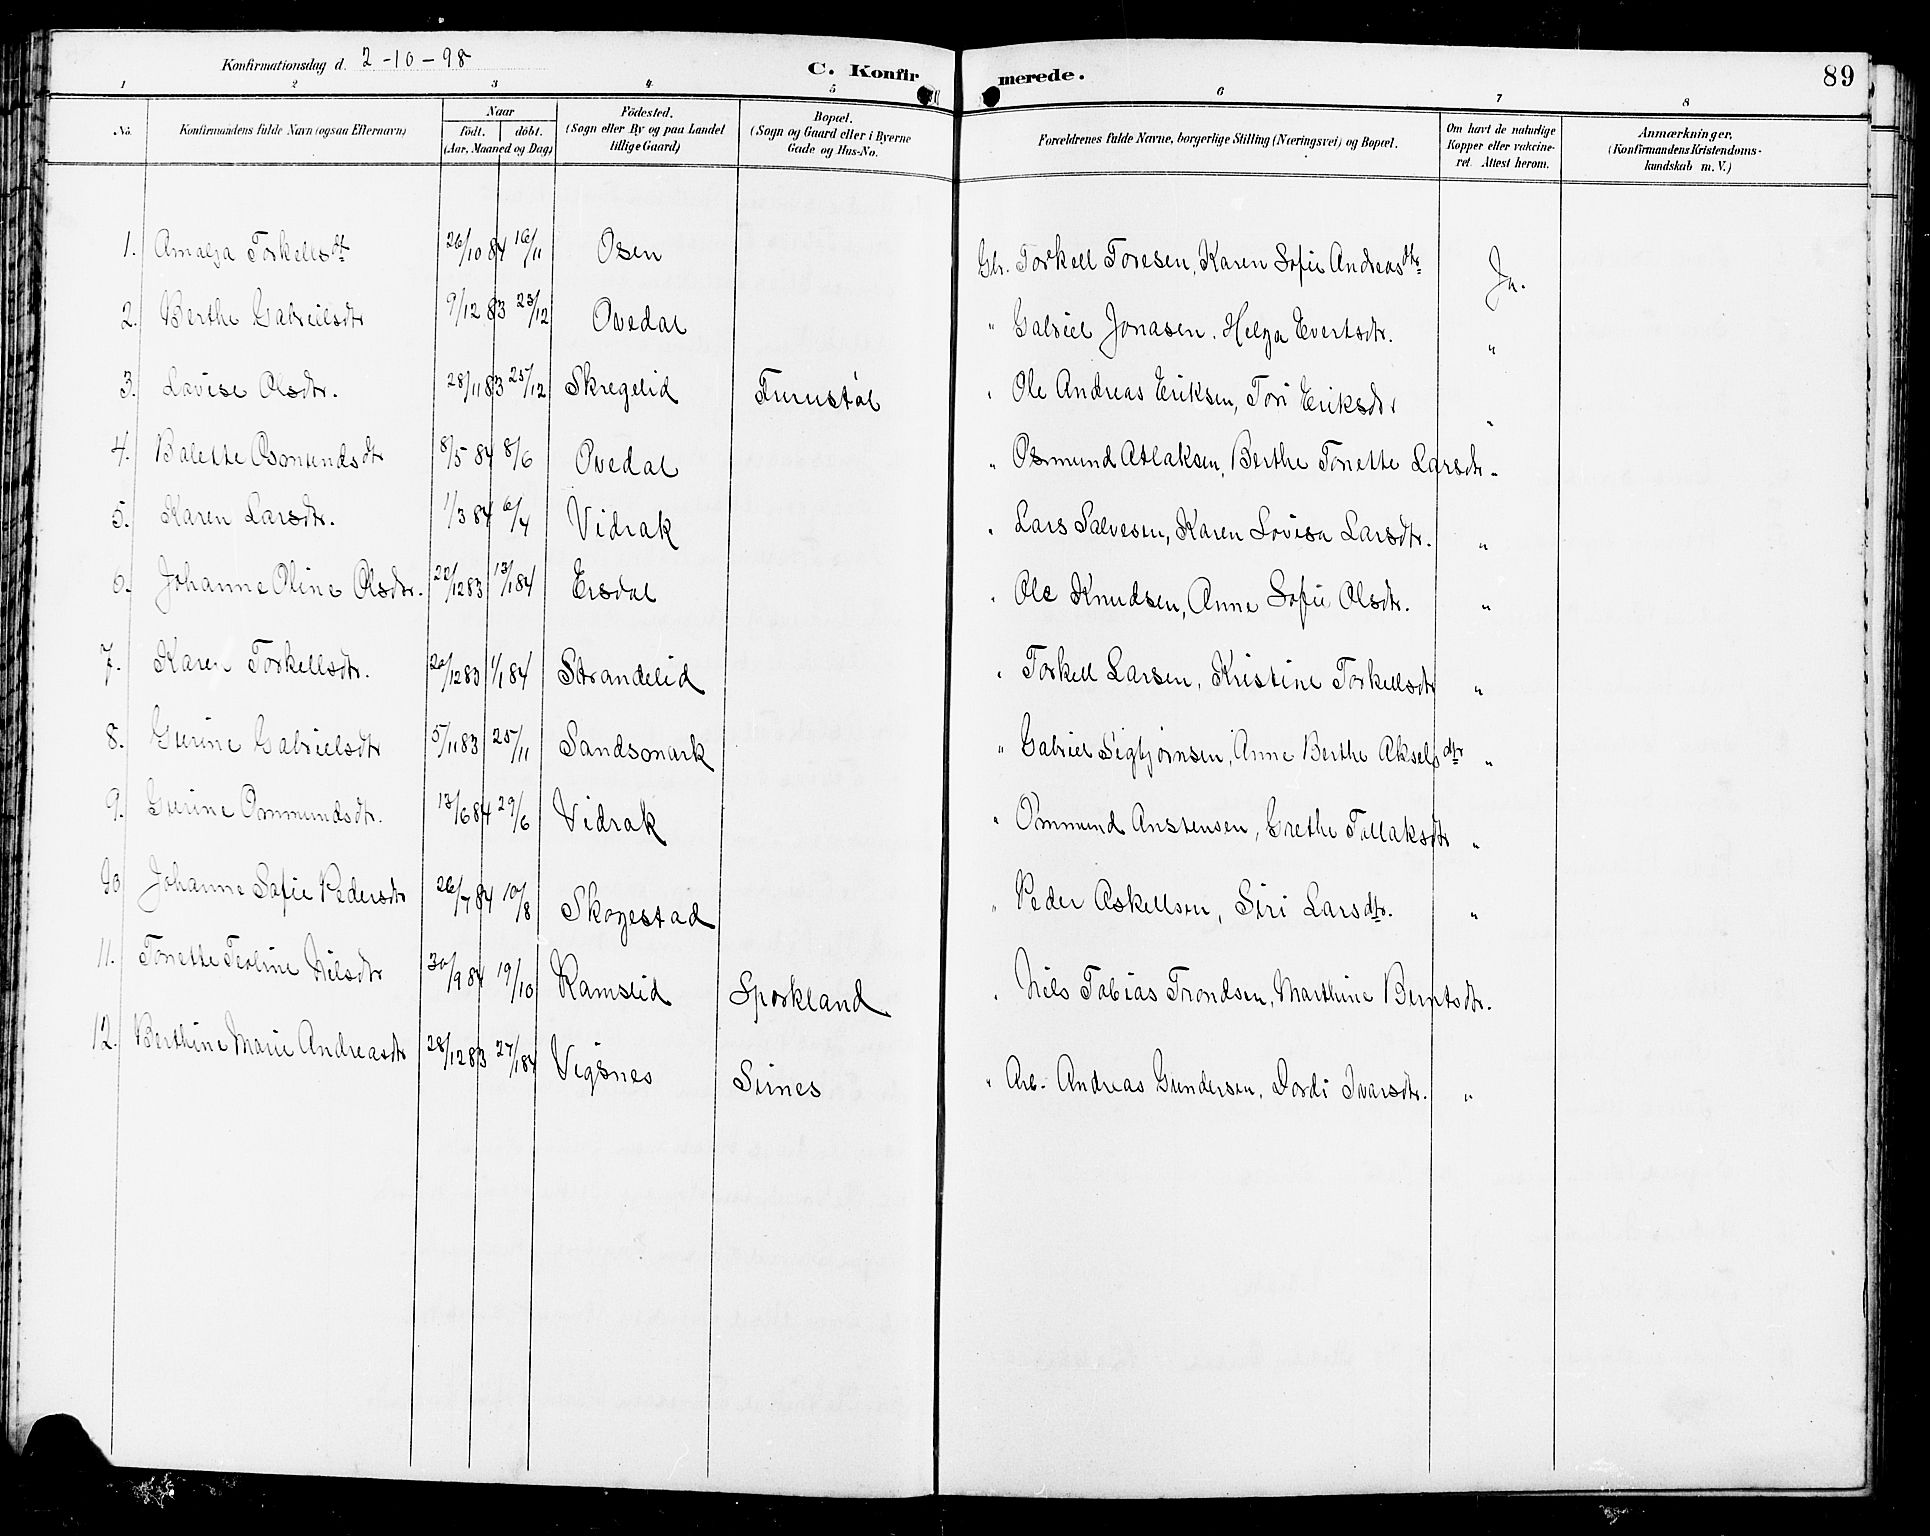 Konfirmationsdag d. 2-10-98
C. Konfirmerede. 89
1 2 3 4 5 6 7 8
No. Konfirmandens fulde Navn (ogsaa Efternavn) Naar født. døbt. (Aar, Maaned og Dag) Fødested. (Sogn eller By og paa Landet tillige Gaard) Bopæl. (Sogn og Gaard eller i Byerne Gade og Hus-No. Forældrenes fulde Navne, borgerlige Stilling (Næringsvei) og Bopæl. Om havt de naturlige Kopper eller vaccineret. Attest herom. Anmærkninger, (Konfirmandens Kristendomskundskab m. V.)
1. Amalja Torkellsdt 26/10 84 16/11 Osen Gbr. Torkell Toresen, Karen Sofie Andreasdtr Ja.
2. Berthe Gabrielsdtr 9/12 83 23/12 Ovedal " Gabriel Jonasen, Helga Evertsdtr. "
3. Lovise Olsdtr. 28/11 83 25/12 Skregelid Furustøl " Ole Andreas Eriksen, Tori Eriksdtr "
4. Balette Osmundsdtr 8/5 84 8/6 Ovedal " Osmund Atlaksen, Berthe Tonette Larsdtr "
5. Karen Larsdtr. 1/3 84 6/4 Vidrak " Lars Salvesen, Karen Lovisa Larsdtr. "
6. Johanne Oline Olsdtr. 22/12 83 13/1 84 Ersdal " Ole Knudsen, Anne Sofie Olsdtr. "
7. Karen Torkellsdtr. 20/12 83 1/1 84 Strandelid " Torkell Larsen, Kristine Torkellsdtr "
8. Gurine Gabrielsdtr 5/11 83 25/11 Sandsmark " Gabriel Sigbjørnsen, Anne Berthe Akselsdtr "
9. Gurine Ommundsdtr. 13/6 84 29/6 Vidrak " Ommund Anstensen, Grethe Tollaksdtr "
10 Johanne Sofie Pedersdtr 26/7 84 10/8 Skogestad " Peder Askellsen, Siri Larsdtr. "
11. Tonette Teoline Nilsdtr 30/9 84 19/10 Ramslid Sporkland " Nils Tobias Trondsen, Marthine Berntsdtr.
12. Berthine Marie Andreasdtr 28/12 83 27/1 84 Vigsnes Sirnes " Arb. Andreas Gundersen, Dordi Ivarsdtr. "